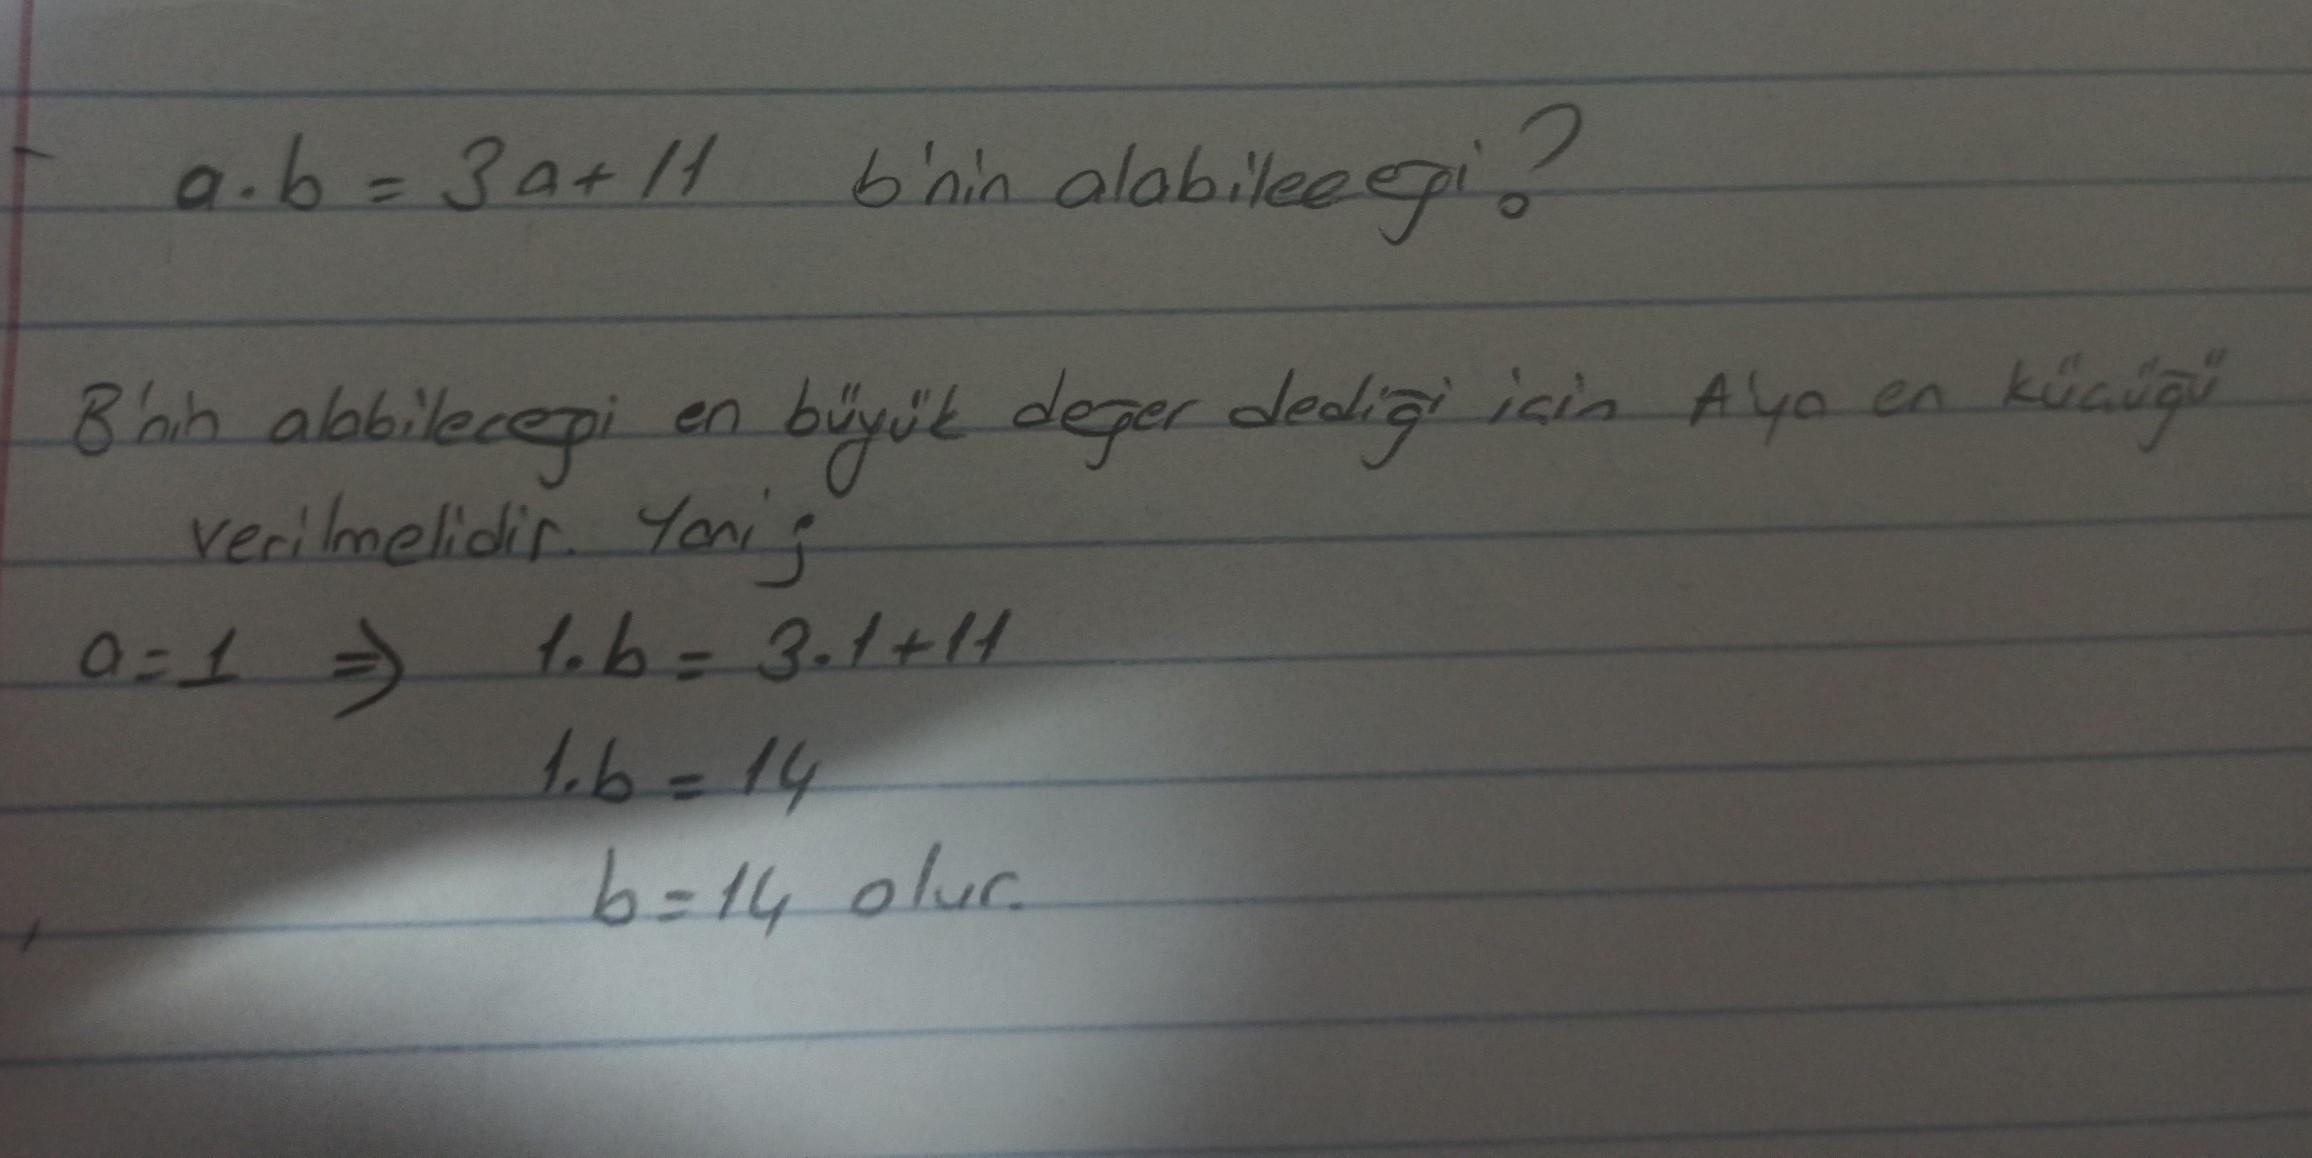 a.b = 3a+11 b'nin alabileceği?
B'nin alabileceği en büyük değer dediği için A'ya en küçüğü
verilmelidir. Yani;
a=1 ⇒ 1.b = 3.1+11
1.b = 14
b=14 olur.